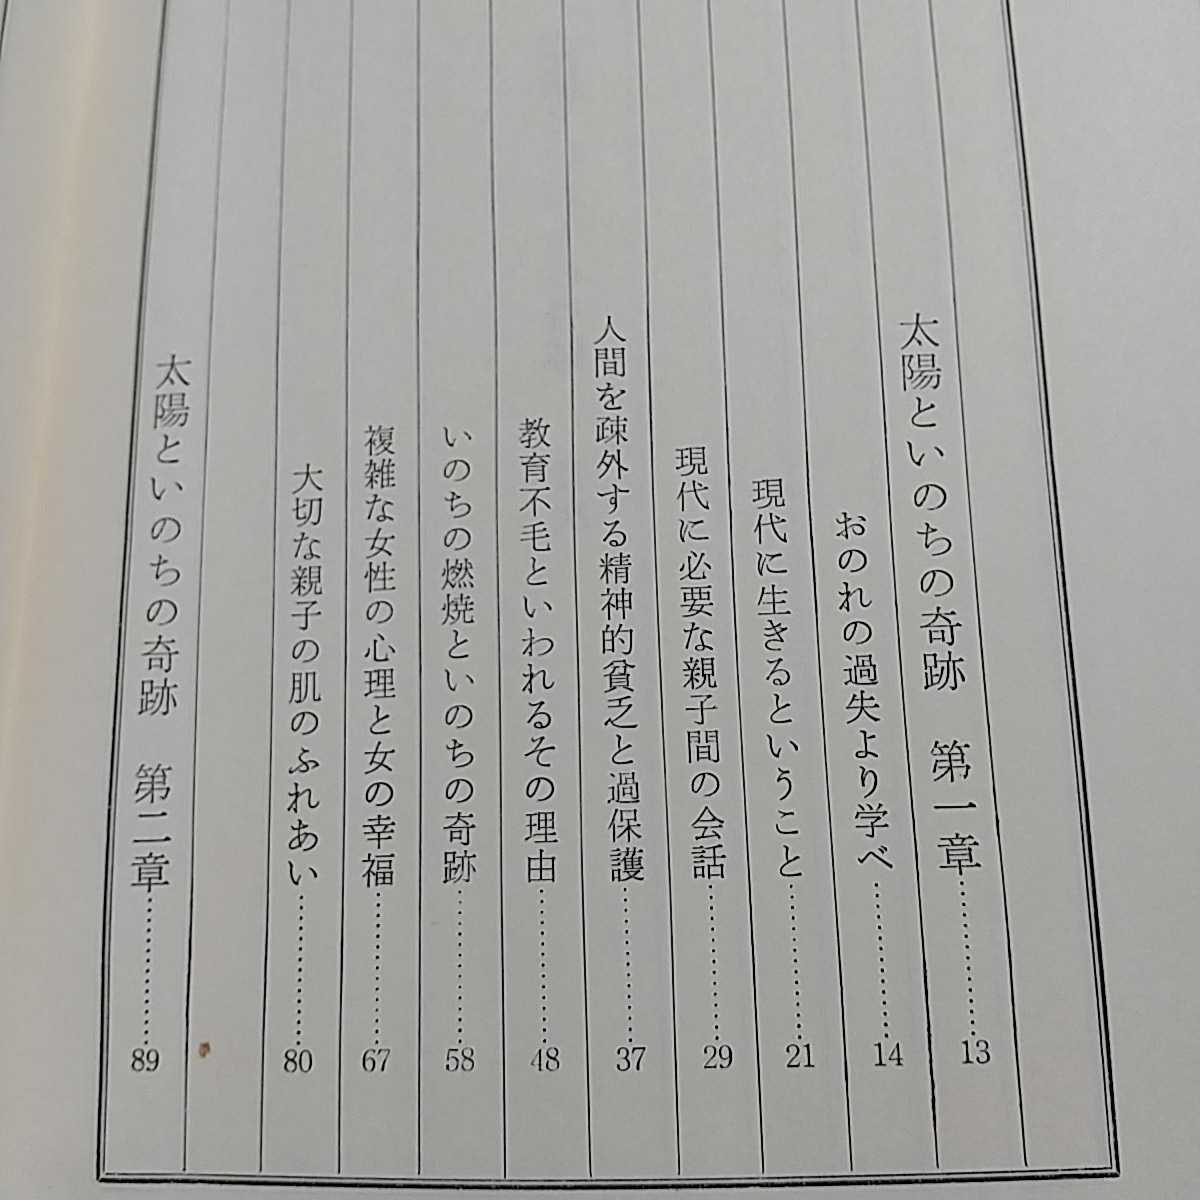 太陽といのちの奇跡　第一章……………13
おのれの過失より学べ……………14
現代に生きるということ……………21
現代に必要な親子間の会話……………29
人間を疎外する精神的貧乏と過保護……………37
教育不毛といわれるその理由……………48
いのちの燃焼といのちの奇跡……………58
複雑な女性の心理と女の幸福……………67
大切な親子の肌のふれあい……………80
太陽といのちの奇跡　第二章……………89